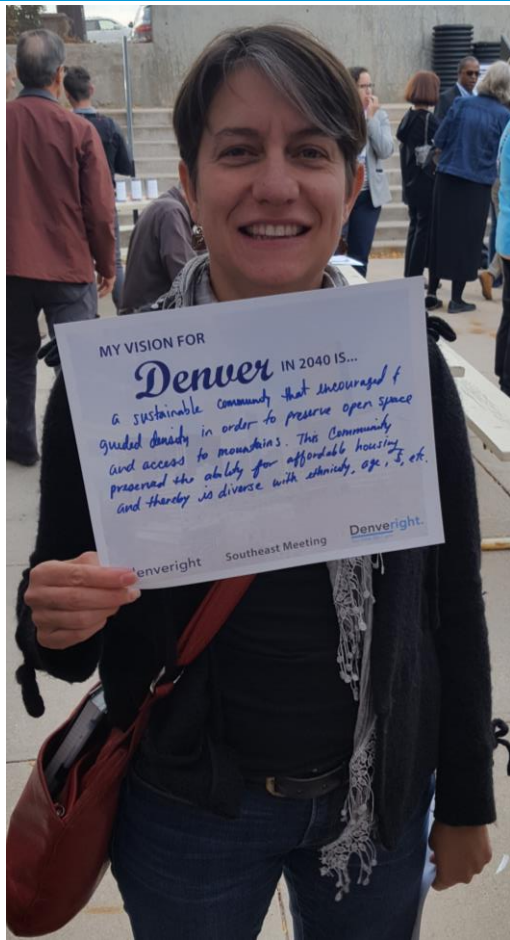 MY VISION FOR
Denver IN 2040 IS...
a sustainable community that encouraged &
guided density in order to preserve open space
and access to mountains. This Community
preserved the ability for affordable housing
and thereby is diverse with ethnicity, age, $, etc.
Denveright Southeast Meeting Denveright.